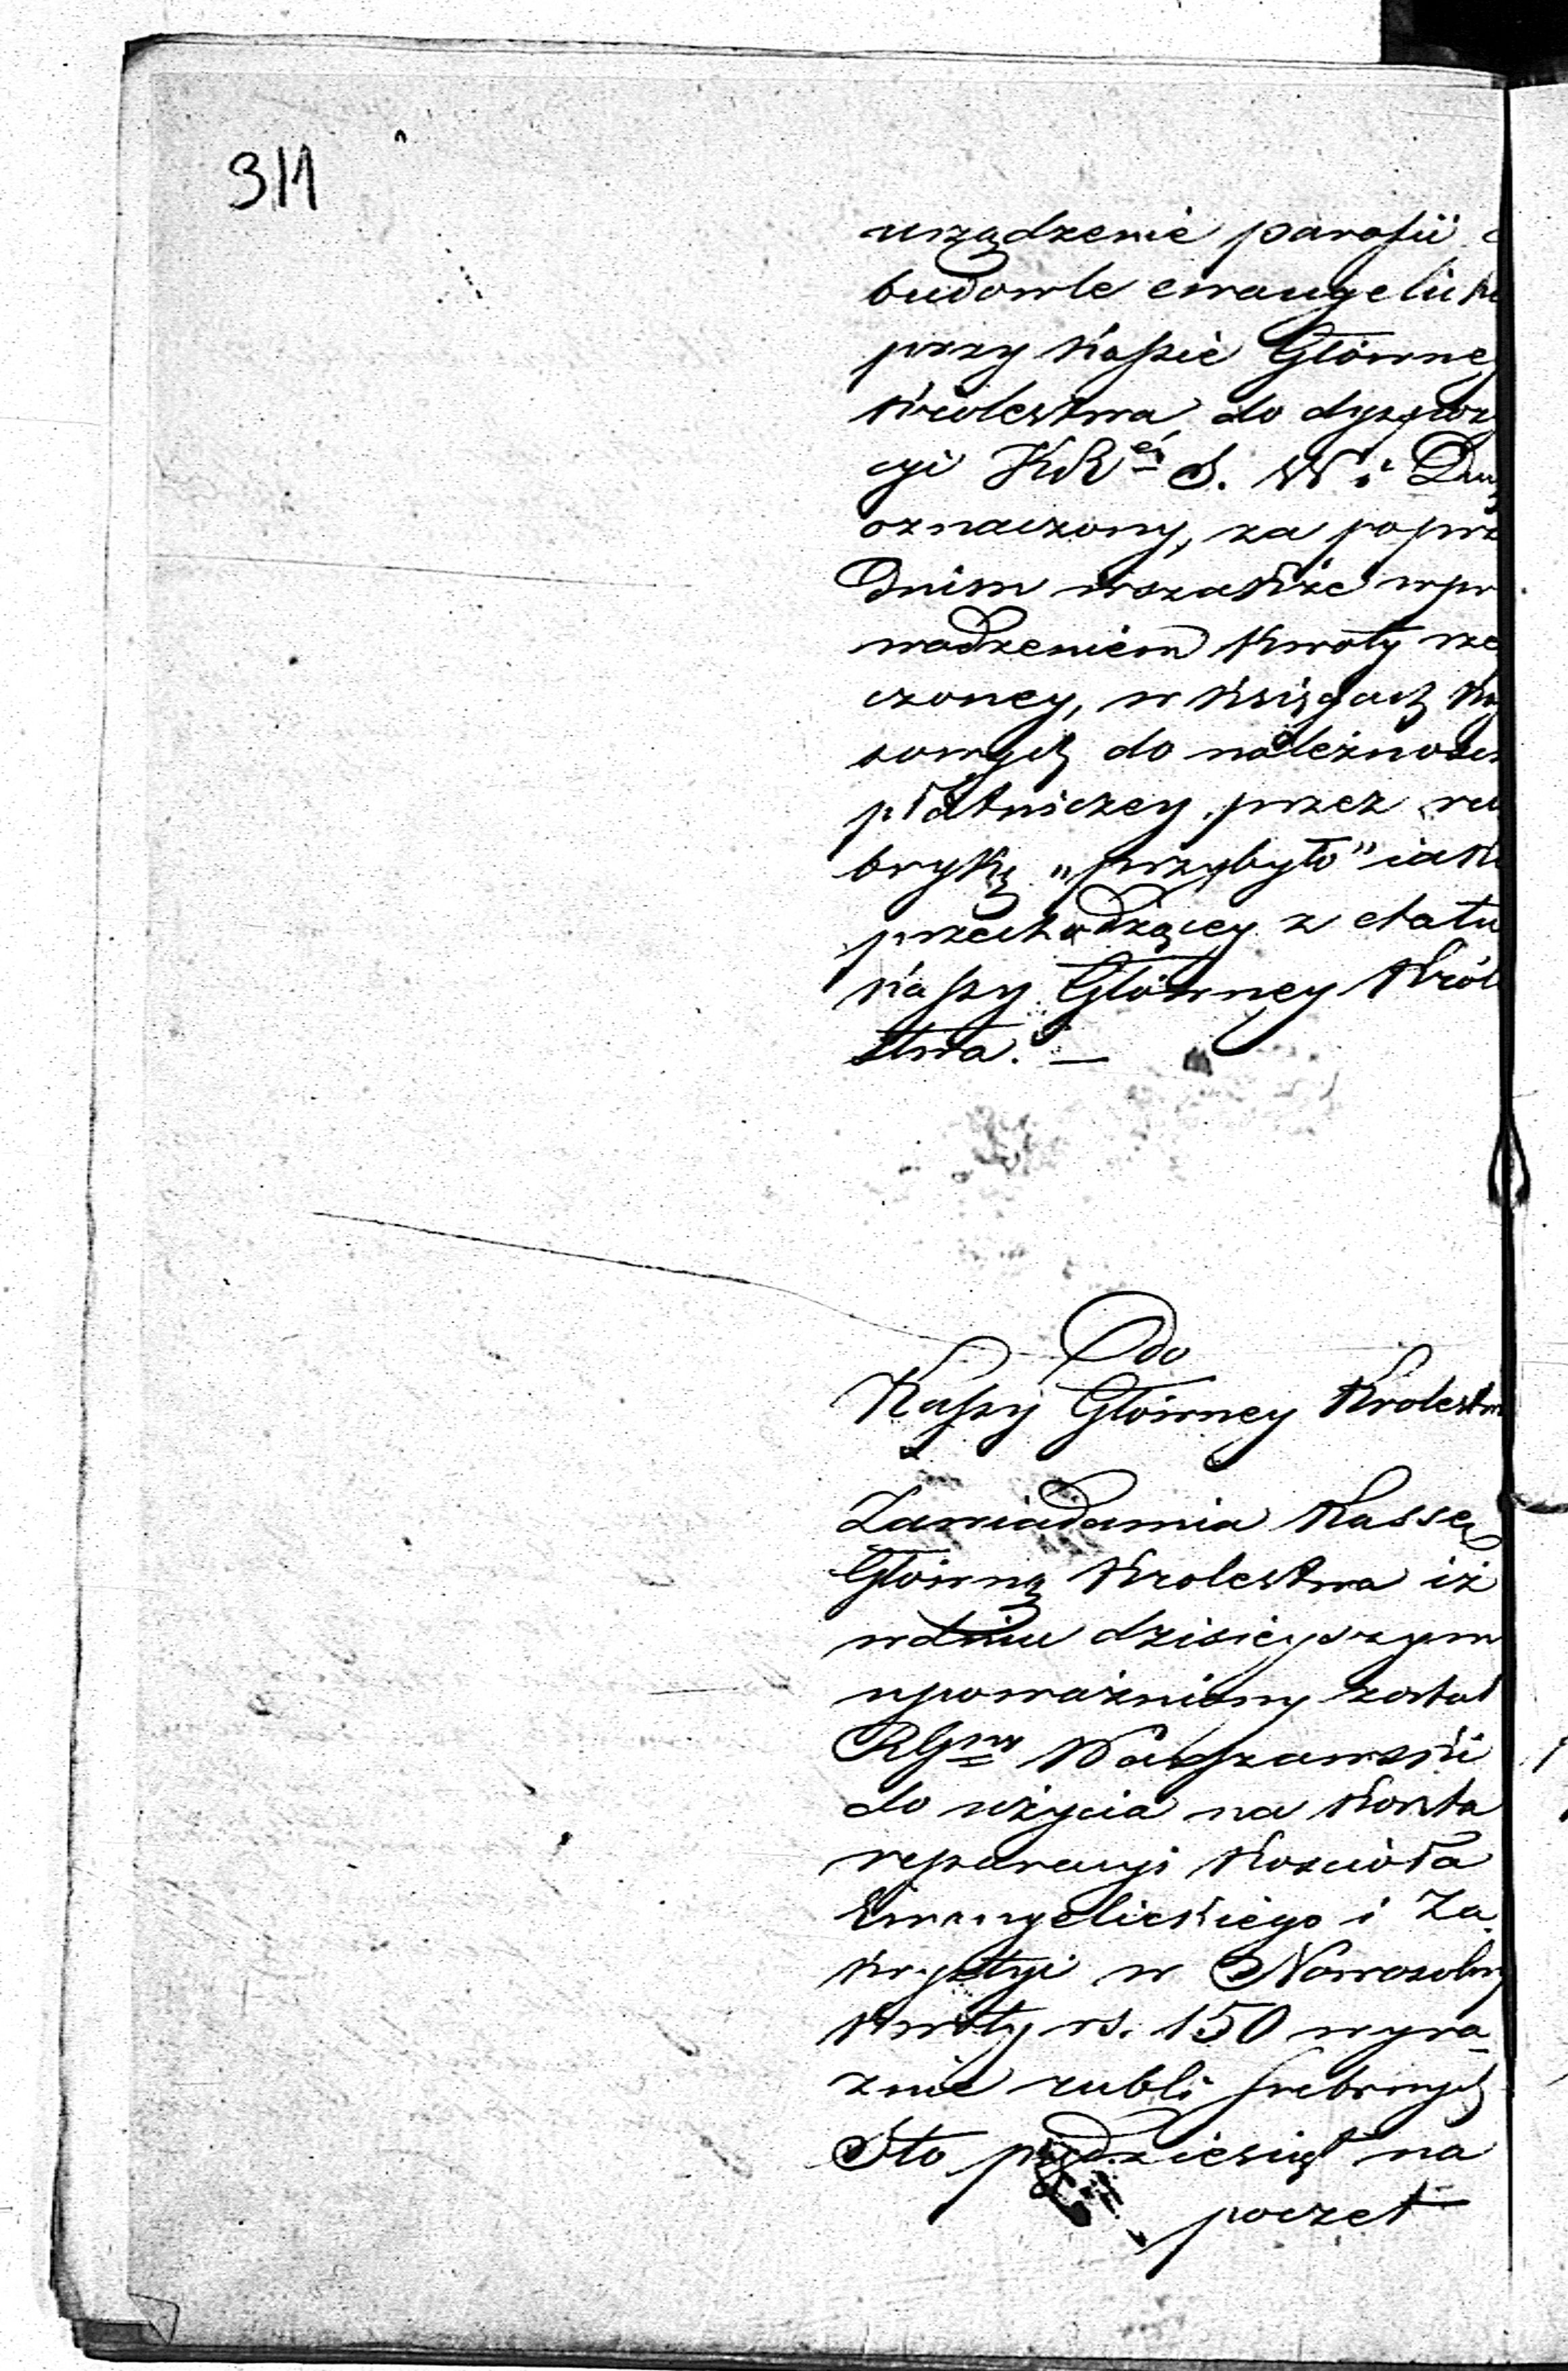 311
urządzenie parafii
budowle ewangelick
przy Kaſsie Główney
Królestwa, do dyspoz
cyi KRei S. W. i Duc
oznaczony, za poprz
dnim wszakże wpr
wadzeniem kwoty rze
czoney, w księgach ka
sowych do należnośc
płatniczey, przez ru
brykę „przybyło” iak
przechodzącey z etatu
Kaſsy Główney Król
stwa. —
Do
Kaſsy Główney Krolestw
Zawiadamia Kassę
Główną Krolestwa iż
w dniu dzisieyszym
upoważniony został
RGny Warszawski
do użycia na koszta
reparacyi Kościoła
Ewangelickiego i Za
krystyi w Nowosolny
kwoty rs. 150 wyra
znie rubli srebrnych
Sto pięćdziesiąt na
poczet